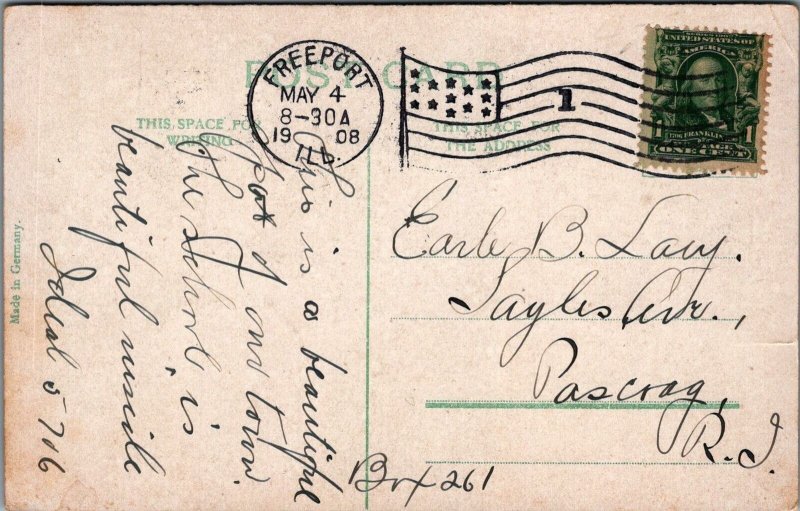 POST CARD
THIS SPACE FOR WRITING
THIS SPACE FOR THE ADDRESS
FREEPORT
MAY 4
8-30A
1908
ILL.
1
SERIES 1902
UNITED STATES OF
AMERICA
1706 FRANKLIN
1 1
ONE CENT
Earle B. Lacy.
Sayles Ave.,
Pascoag,
R. I.
Box 261
This is a beautiful
spot of our town.
The school is
beautiful inside
Ideal 5706
Made in Germany.